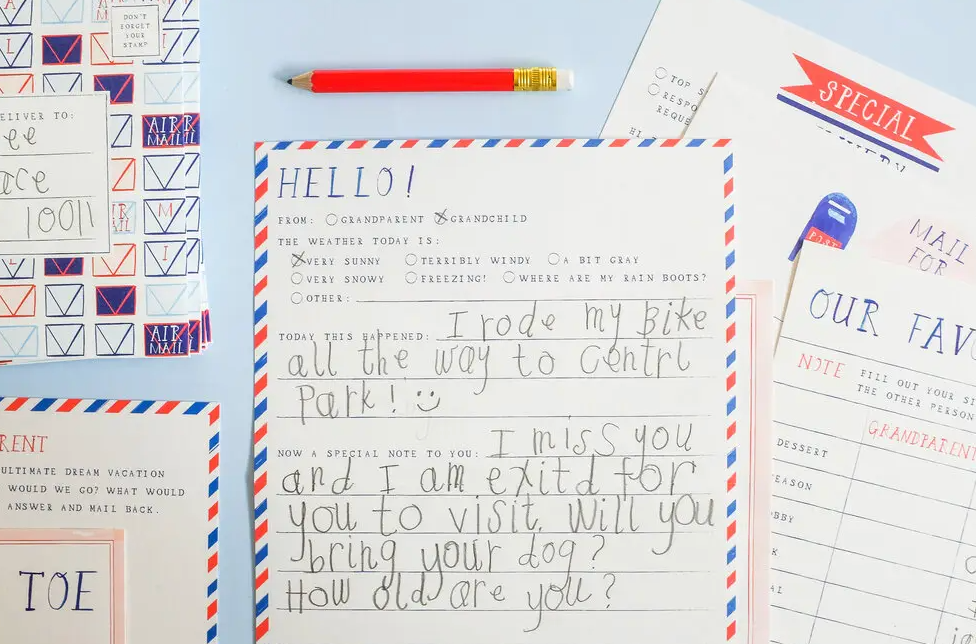 DON'T
FORGET
YOUR
STAMP
AIR
MAIL
DELIVER TO:
10011
AIR
MAIL
HELLO!
FROM: GRANDPARENT GRANDCHILD
THE WEATHER TODAY IS:
VERY SUNNY TERRIBLY WINDY A BIT GRAY
VERY SNOWY FREEZING! WHERE ARE MY RAIN BOOTS?
OTHER:
TODAY THIS HAPPENED: I rode my bike
all the way to Centrl
Park!
NOW A SPECIAL NOTE TO YOU: I miss you
and I am exitd for
you to visit. Will you
bring your dog?
How old are you?
ULTIMATE DREAM VACATION
WOULD WE GO? WHAT WOULD
ANSWER AND MAIL BACK.
TOE
TOP
SPECIAL
POST
MAIL
FOR
OUR
NOTE FILL OUT YOUR
THE OTHER PERSON
GRANDPARENT
DESSERT